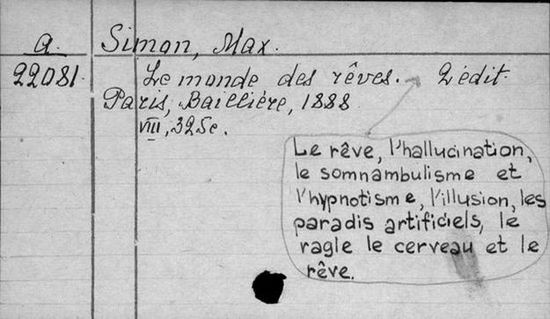 a. Simon, Max.
22081. Le monde des rêves. 2 édit.
Paris, Baillière, 1888
VIII, 325c.
Le rêve, l'hallucination,
le somnambulisme et
l'hypnotisme, l'illusion, les
paradis artificiels, le
ragle le cerveau et le
rêve.